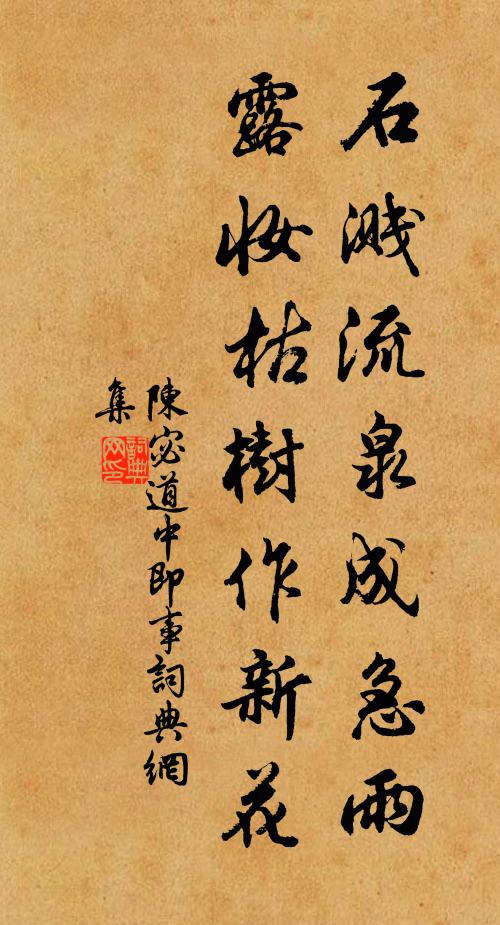 石溅流泉成急雨
露妆枯樹作新花
陳宓道中即事詞典網
集
詞典
网印